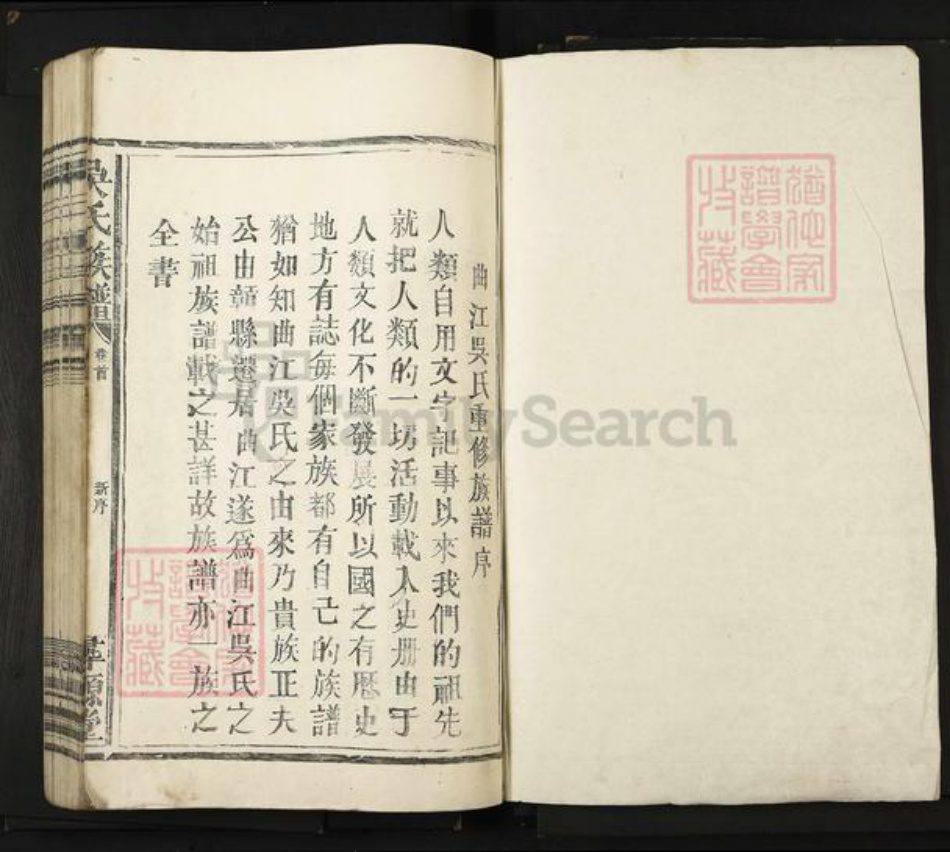 曲江吳氏重修族譜序
人類自用文字記事以來我們的祖先
就把人類的一切活動載入史册由于
人類文化不斷發展所以國之有歷史
地方有誌每個家族都有自己的族譜
猶如知曲江吳氏之由來乃貴族正夫
公由贛縣遷居曲江遂爲曲江吳氏之
始祖族譜載之甚詳故族譜亦一族之
全書
吳氏族譜
卷首
新序
FamilySearch
譜學會
收藏
譜學會
收藏